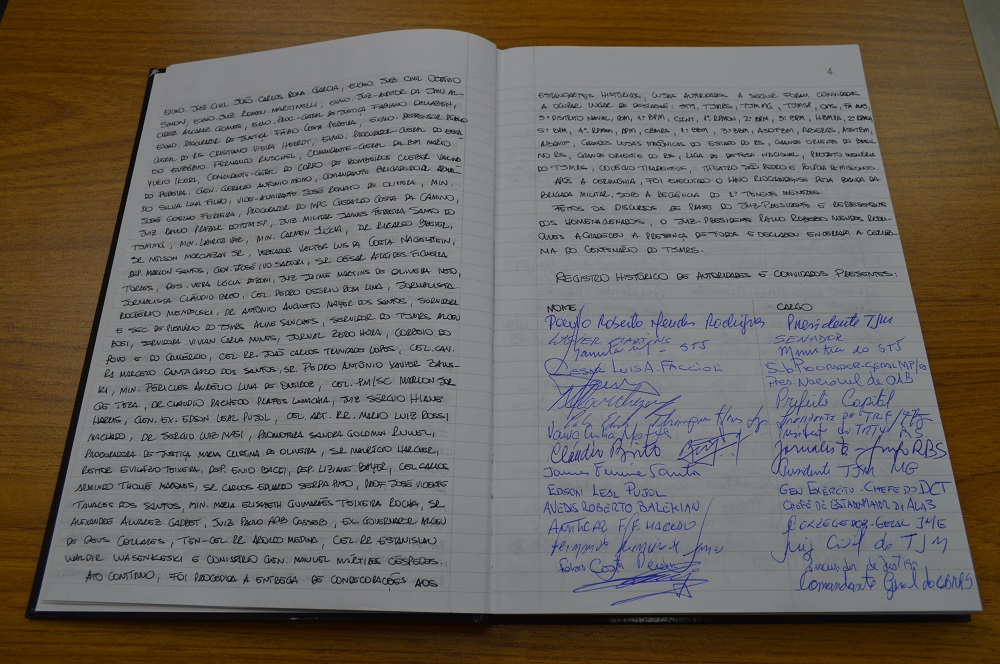 EXMO. JUIZ CIVIL JOÃO CARLOS BONA GARCIA, EXMO. JUIZ CIVIL OCTAVIO
SIMON, EXMO. JUIZ RONEN MARTINELLI, EXMO. JUIZ-AUDITOR DA JMU AL-
CIDES ALCARAZ GOMES, EXMO. PROC.-GERAL DE JUSTIÇA FABIANO DALLAZEN,
EXMO. PROCURADOR DE JUSTIÇA FÁBIO COSTA PEREIRA, EXMO. DEFENSOR PÚBLICO
GERAL DO RS CRISTIANO VIEIRA HEERDT, EXMO. PROCURADOR-GERAL DO
DO EUZÉBIO FERNANDO RUSCHEL, COMANDANTE-GERAL DA BM MARIO
YUKIO IKEDA, COMANDANTE-GERAL DO CORPO DE BOMBEIROS CLEBER
DO PEREIRA, GEN. GERALDO ANTONIO MIOTTO, COMANDANTE BRIGADEIRO-AR ARNAL-
DO SILVA LIMA FILHO, VICE-ALMIRANTE JOSÉ RENATO DE OLIVEIRA, MIN.
JOSÉ COELHO FERREIRA, PROCURADOR DO MPC GERALDO COSTA DA CAMINO,
JUIZ PAULO PRAZAK DO TJMSP, JUIZ MILITAR JAMES FERREIRA SANTOS DO
TJMMG, MIN. LAURITA VAZ, MIN. CARMEN LÚCIA, DR. RICARDO BREIER,
SR. NELSON MARCHEZAN JR., VEREADOR VALTER LUIS DA COSTA NAGELSTEIN,
DEP. MARLON SANTOS, GEN. JOSÉ IVO SARTORI, SR. CÉSAR ATAÍDES FIGUEIRA
TORRES, DES. VERA LÚCIA DEBONI, JUIZ JAIME MARTINS DE OLIVEIRA NETO,
JORNALISTA CLÁUDIO BRITO, CEL. PEDRO OSÓRIO ROSA LIMA, JORNALISTA
ROGÉRIO MENDELSKI, DR. ANTONIO AUGUSTO MAYER DOS SANTOS, SERVIDORA
E SEC. DE PLENÁRIO DO TJMRS ALINE SANCHES, SERVIDOR DO TJMRS
BOSI, SERVIDORA VIVIAN CARLA NUNES, JORNAL ZERO HORA, CORREIO DO
POVO E DO COMÉRCIO, CEL. RR. JOÃO CARLOS TRINDADE LOPES, CEL. CAV.
R1 MARCELO CANTAGALO DOS SANTOS, SR. PEDRO ANTÔNIO XAVIER
MIN. PÉRICLES AURÉLIO LIMA DE QUEIROZ, CEL. PM/SC MARLON JOR-
GE TEZA, DR. CLAUDIO PACHECO PRATES LAMACHIA, JUIZ SÉRGIO
GEN. EX. EDSON LEAL PUJOL, CEL. ART. RR. MARIO LUIZ ROSSI
MACHADO, DR. SERGIO LUIZ NASI, PROMOTORA SANDRA GOLDMAN RUWEL,
PROCURADORA DE JUSTIÇA MARIA CRISTINA DE OLIVEIRA, SR. MAURÍCIO
REITOR EVILÁZIO TEIXEIRA, DEP. ENIO BACCI, DEP. LIZIANE BAYER, CEL. CARLOS
ARMINDO THOMÉ MARQUES, SR. CARLOS EDUARDO SERPA PINTO, PROF. JOSÉ VICENTE
TAVARES DOS SANTOS, MIN. MARIA ELISABETH GUIMARÃES TEIXEIRA ROCHA, SR.
ALEXANDRE ALVAREZ GADRET, JUIZ PAULO ADIB CASSEB, EX. GOVERNADOR ALCEU
DE DEUS COLLARES, TEN-CEL. RR. AROLDO MEDINA, CEL. RR. ESTANISLAU
WALDIR WASENKESKI E COMISSÁRIO GEN. MANUEL MÁRTIRES CÉSPEDES.
ATO CONTÍNUO, FOI PROCEDIDA A ENTREGA DE CONDECORAÇÕES AOS
4
ESTANDARTES HISTÓRICOS, CUJAS AUTORIDADES A SEGUIR FORAM CONVIDADAS
A OCUPAR LUGAR DE DESTAQUE: STM, TJMRS, TJMMG, TJMSP, CMS,
5º DISTRITO NAVAL, BM, 1º BPM, 2º BPM, 3º BPM,
5º BPM, 4º RPMON, APM, CBMRS, 1º BBM, 3º BBM, ASOFBM, ABERGS, ASSTBM,
GRANDES LOJAS MAÇÔNICAS DO ESTADO DO RS, GRANDE ORIENTE DO BRASIL
NO RS, GRANDE ORIENTE DO RS, LIGA DE DEFESA NACIONAL, PROJETO MEMÓRIA
DO TJMRS, COLÉGIO TIRADENTES, THEATRO SÃO PEDRO E
APÓS A CERIMÔNIA, FOI EXECUTADO O HINO RIOGRANDENSE PELA BANDA DA
BRIGADA MILITAR, SOB A REGÊNCIA DO 1º TENENTE MENEZES.
FEITOS OS DISCURSOS DE PRAXE DO JUIZ-PRESIDENTE E REPRESENTANTE
DOS HOMENAGEADOS, O JUIZ-PRESIDENTE PAULO ROBERTO MENDES RODRI-
GUES AGRADECEU A PRESENÇA DE TODOS E DECLAROU ENCERRADA A CERIMÔ-
NIA DO CENTENÁRIO DO TJMRS.
REGISTRO HISTÓRICO DE AUTORIDADES E CONVIDADOS PRESENTES:
NOME CARGO
Paulo Roberto Mendes Rodrigues Presidente TJM
LASIER MARTINS SENADOR
Laurita Vaz - STJ Ministra do STJ
Cesar Luis A. Faccioli SUBPROCURADOR-GERAL MP/RS
Pres. Nacional da OAB
Prefeito Capital
Presidente do TRF 4
Cláudio Brito Jornalista Grupo RBS
James Ferreira Santos Presidente TJM MG
EDSON LEAL PUJOL GEN EXÉRCITO - CHEFE DO DCT
AVEDIS ROBERTO BALEKIAN CHEFE DE ESTADO MAIOR DA ALA3
AMILCAR F. F. MACEDO CORREGEDOR-GERAL JME
Juiz Civil do TJM
Fábio Costa Pereira Procurador de Justiça
Comandante Geral do CBMRS